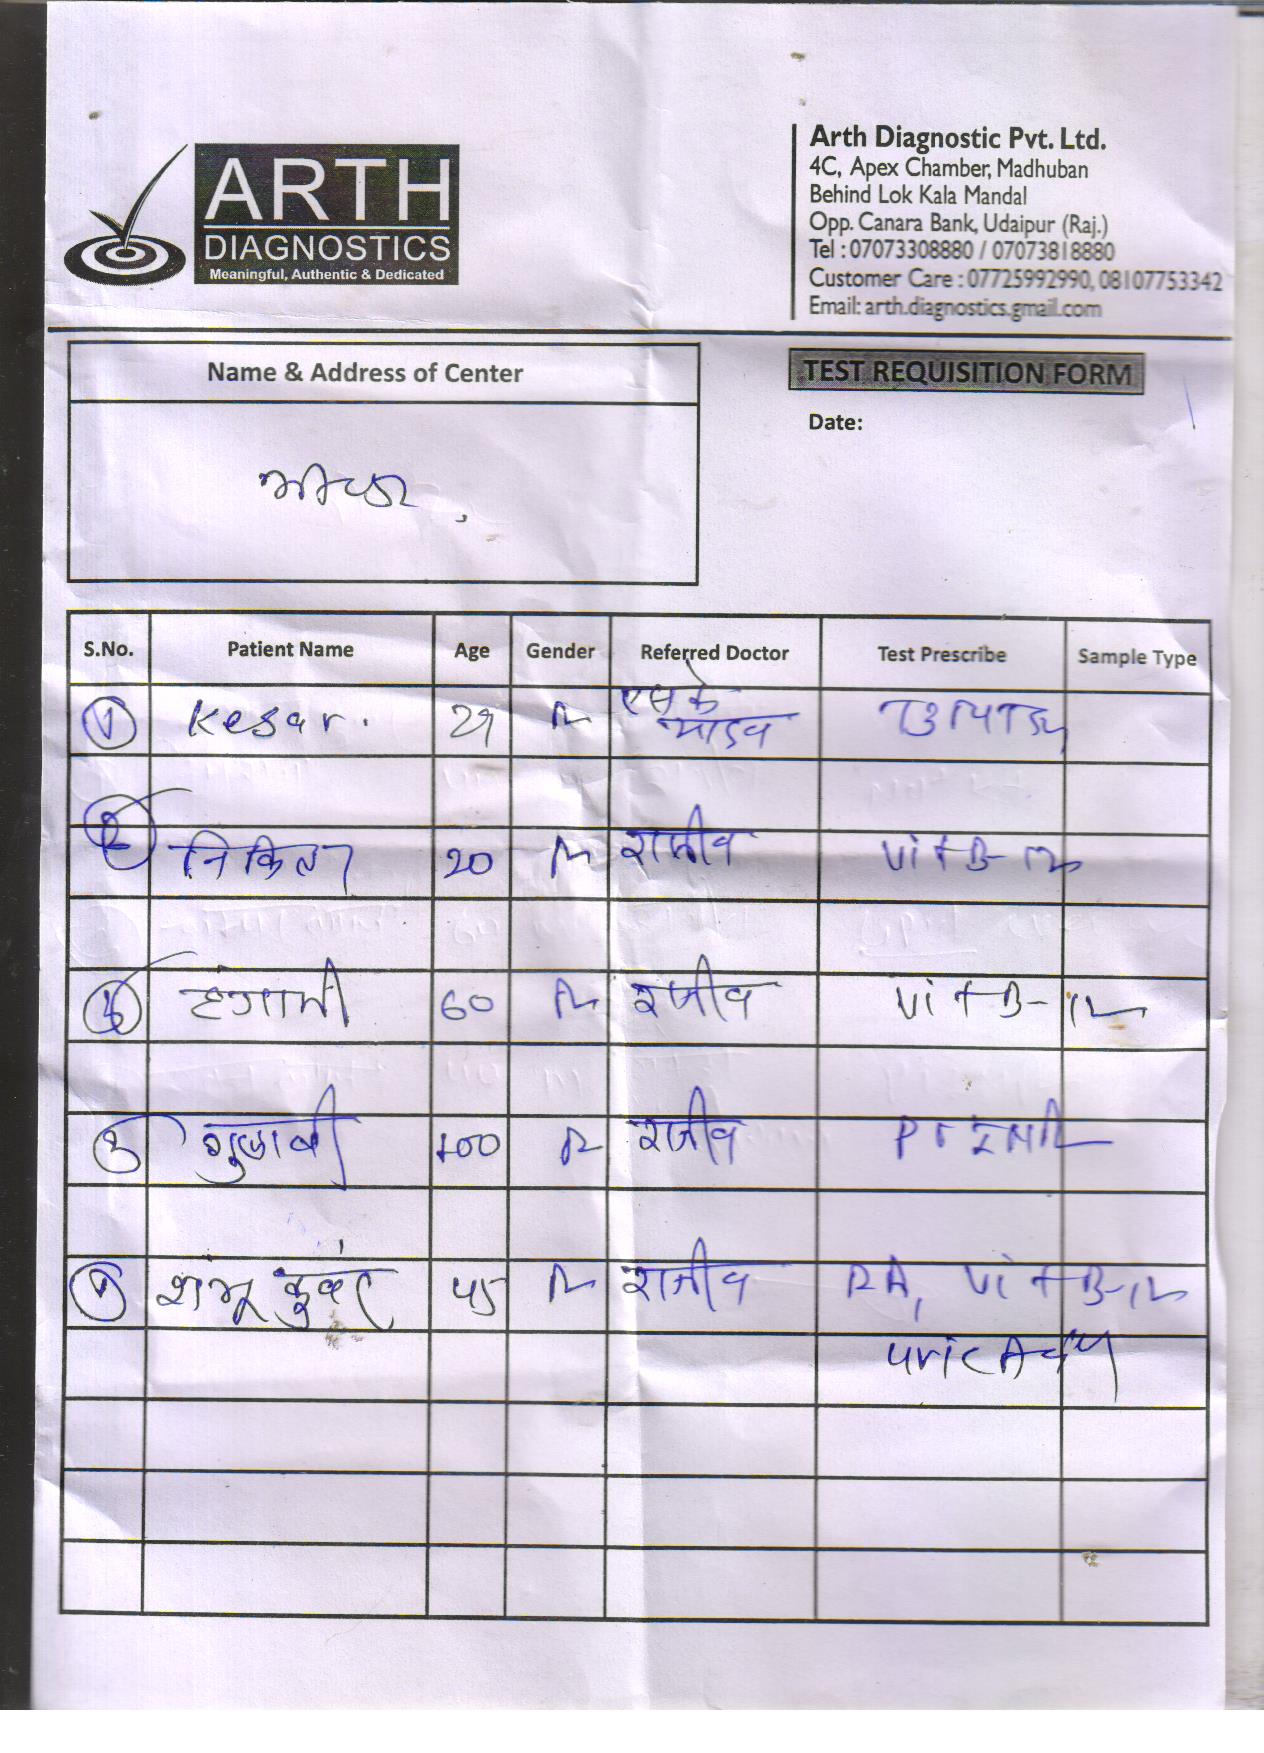 ARTH
DIAGNOSTICS
Meaningful, Authentic & Dedicated
Arth Diagnostic Pvt. Ltd.
4C, Apex Chamber, Madhuban
Behind Lok Kala Mandal
Opp. Canara Bank, Udaipur (Raj.)
Tel : 07073308880 / 07073818880
Customer Care : 07725992990, 08107753342
Email: arth.diagnostics.gmail.com
Name & Address of Center
TEST REQUISITION FORM
Date:
S.No. Patient Name Age Gender Referred Doctor Test Prescribe Sample Type
1 Kesar. 29 एस के
यादव T3T4TSH
2 20 M राजीव Vit B-12
60 राजीव Vit B-12
3 गुलाबी 100 राजीव PT INR
शम्भू कुवंर 45 राजीव RA, Vit B-12
uric Acid